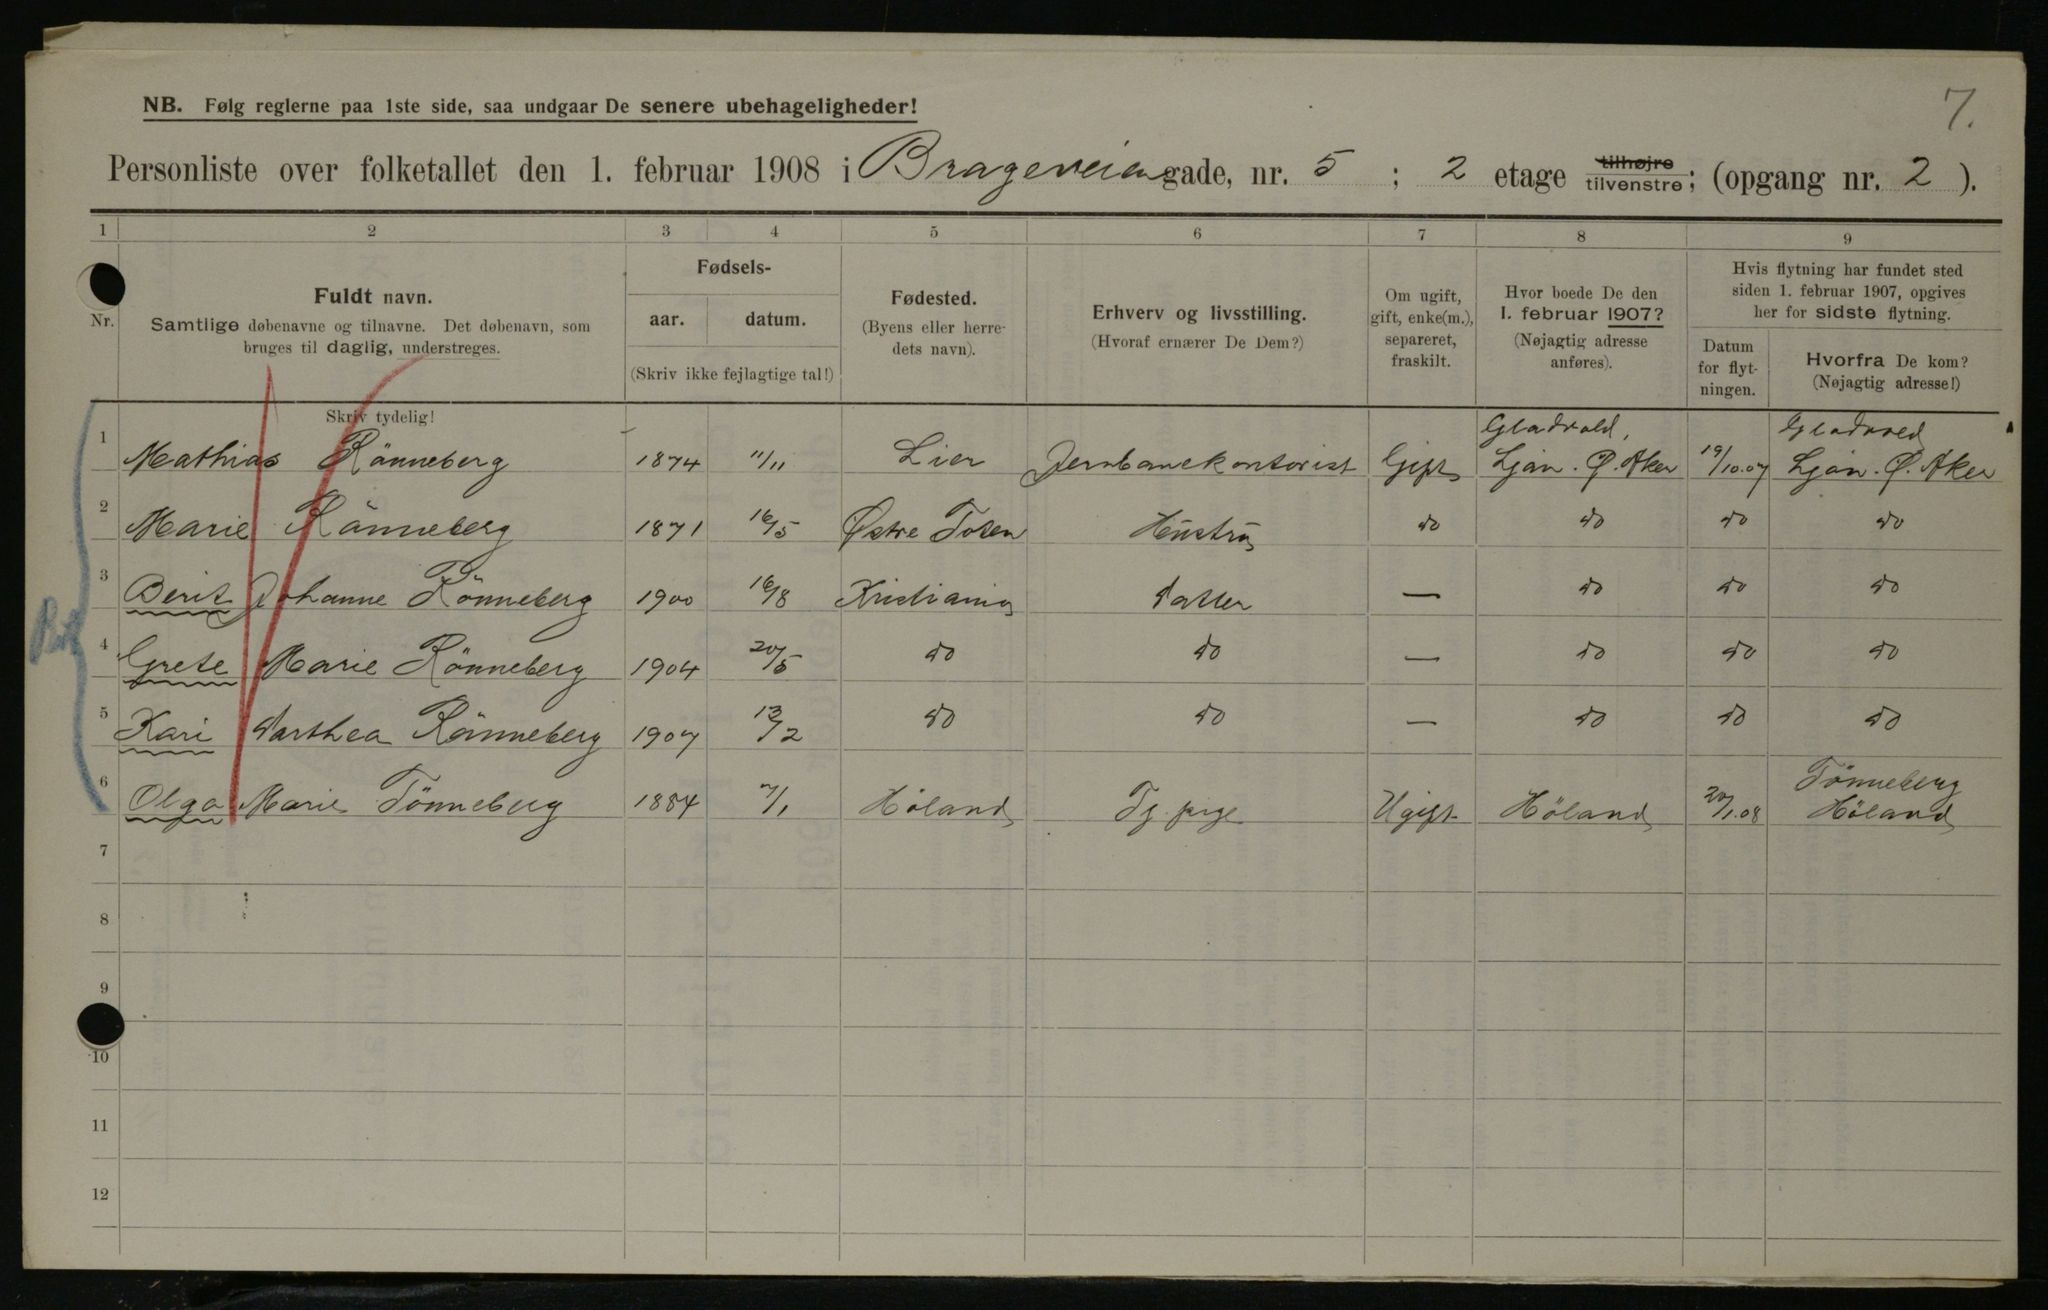 7.
NB. Følg reglerne paa 1ste side, saa undgaar De senere ubehageligheder!
Personliste over folketallet den 1. februar 1908 i Brageveien gade, nr. 5 ; 2 etage tilhøjre tilvenstre; (opgang nr. 2 ).
1 2 3 4 5 6 7 8 9
Nr.
Fuldt navn.
Samtlige døbenavne og tilnavne. Det døbenavn, som
bruges til daglig, understreges.
Skriv tydelig!
Fødsels-
aar. datum.
(Skriv ikke fejlagtige tal!)
Fødested.
(Byens eller herre-
dets navn).
Erhverv og livsstilling.
(Hvoraf ernærer De Dem?)
Om ugift,
gift, enke(m.),
separeret,
fraskilt.
Hvor boede De den
1. februar 1907?
(Nøjagtig adresse
anføres).
Hvis flytning har fundet sted
siden 1. februar 1907, opgives
her for sidste flytning.
Datum
for flyt-
ningen.
Hvorfra De kom?
(Nøjagtig adresse!)
1 Mathias Rönneberg 1874 11/11 Lier Jernbanekontorist Gift Gladvold, Ljan. Ø. Aker 19/10.07 Gladvold Ljan. Ø. Aker
2 Marie Rönneberg 1871 16/5 Østre Toten Hustru do do do do
3 Berit Johanne Rönneberg 1900 16/8 Kristiania Datter — do do do
4 Grete Marie Rönneberg 1904 20/5 do do — do do do
5 Kari Darthea Rönneberg 1907 13/2 do do — do do do
6 Olga Marie Tönneberg 1884 7/1 Höland Tj. pige Ugift Höland 20/1.08 Tönneberg Höland
7
8
9
10
11
12